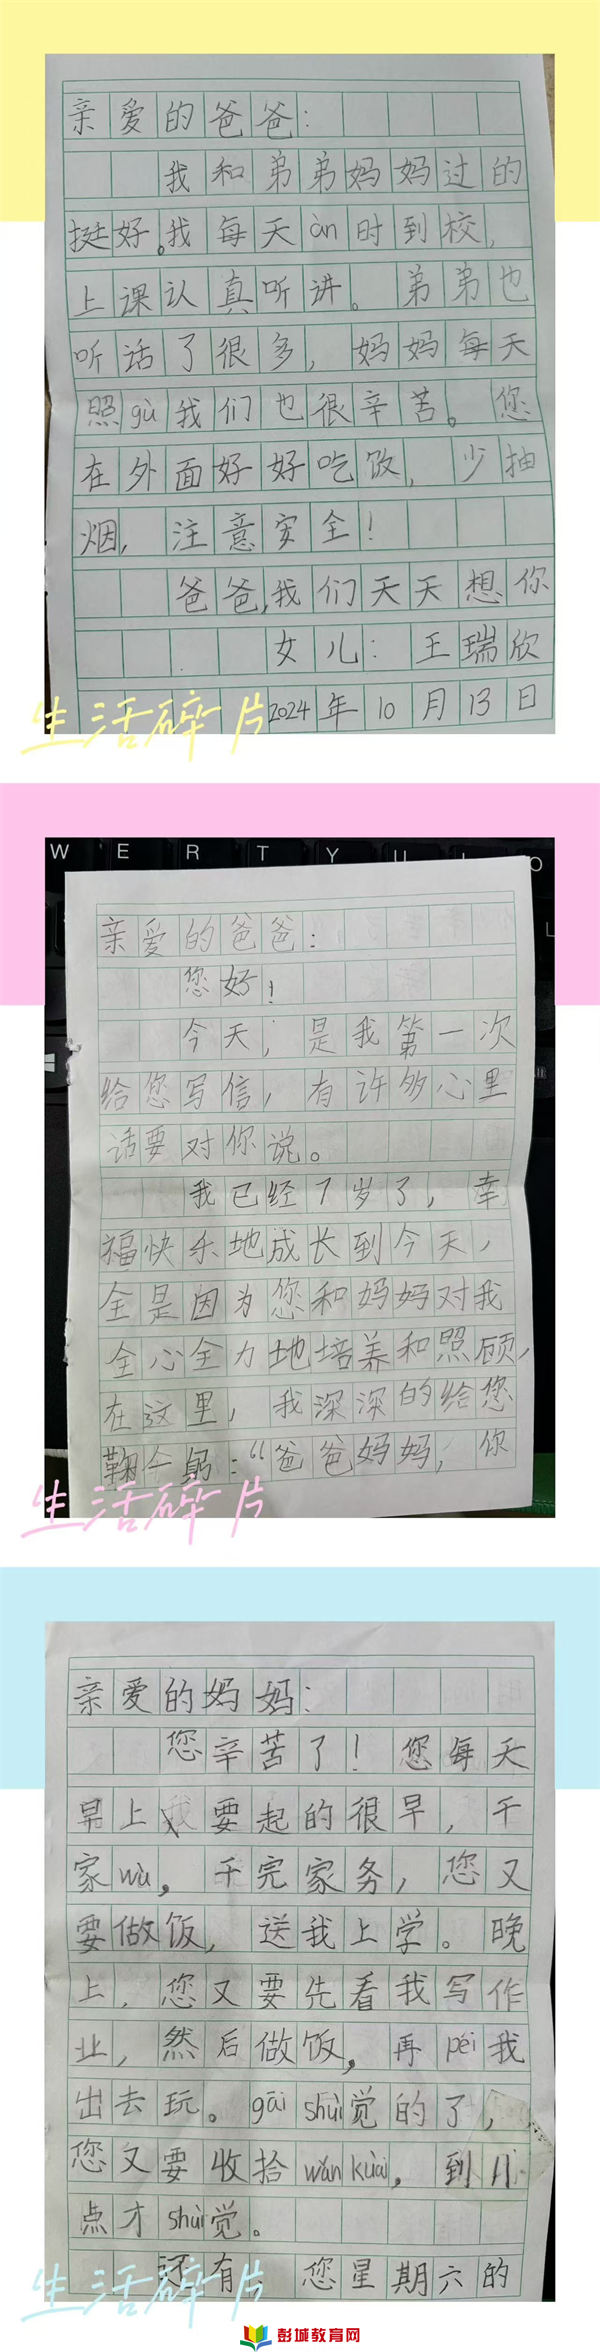 亲爱的爸爸：
我和弟弟妈妈过的
挺好。我每天àn时到校，
上课认真听讲。弟弟也
听话了很多，妈妈每天
照gù我们也很辛苦。您
在外面好好吃饭，少抽
烟，注意安全！
爸爸，我们天天想你
女儿：王瑞欣
2024年10月13日
生活碎片
W E R T Y U I O
亲爱的爸爸：
您好！
今天，是我第一次
给您写信，有许多心里
话要对你说。
我已经7岁了，幸
福快乐地成长到今天，
全是因为您和妈妈对我
全心全力地培养和照顾，
在这里，我深深的给您
鞠个躬：“爸爸妈妈，你
生活碎片
亲爱的妈妈：
您辛苦了！您每天
早上要起的很早，干
家wù，干完家务，您又
要做饭，送我上学。晚
上，您又要先看我写作
业，然后做饭，再péi我
出去玩。gāi shuì觉的了，
您又要收拾wǎn kuài，到11
点才shuì觉。
还有，您星期六的
生活碎片
彭城教育网